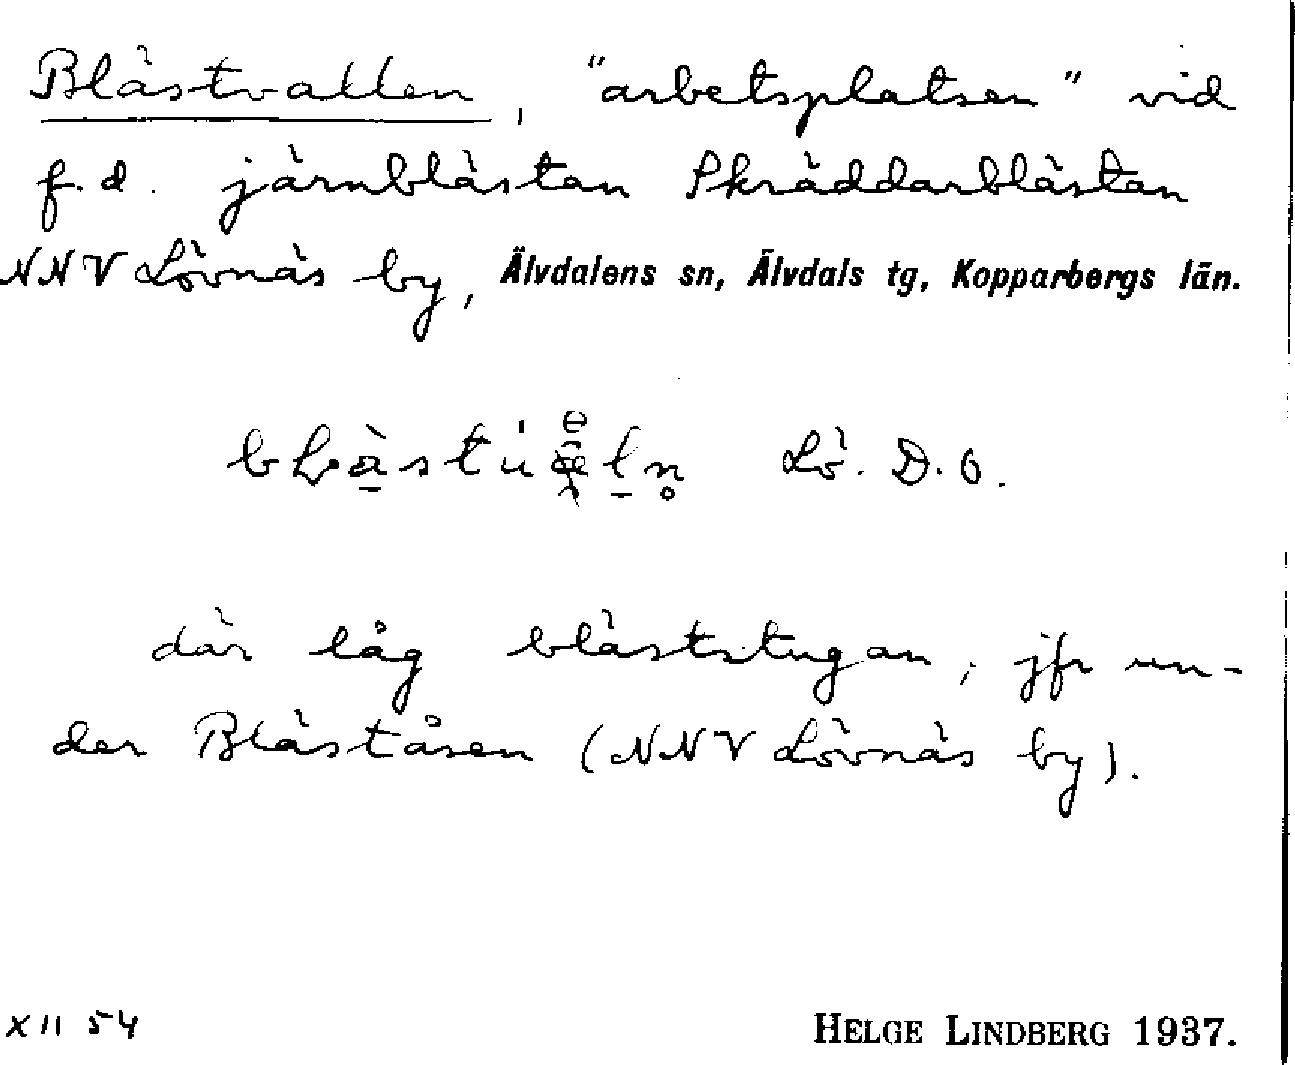 Blästvallen, "arbetsplatsen" vid
f.d. järnblästan Skräddarblästan
NNV Lövnäs by, Älvdalens sn, Älvdals tg, Kopparbergs län.
Lö. D.O.
där låg bläststugan, jfr un-
der Bläståsen (NNV Lövnäs by).
XII 54
HELGE LINDBERG 1937.